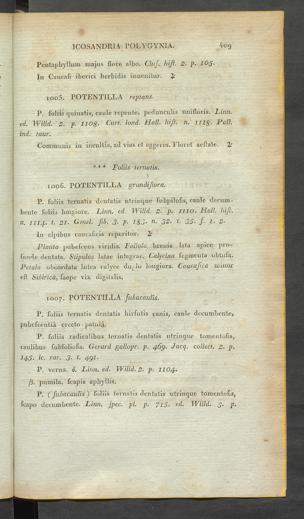 ICOSANDRIA POLYGYNIA. 409
Pentaphyllum majus flore albo. Cluſ. hiſt. 2. p. 105.
In Caucaſi iberici herbidis inuenitur. ♃
1005. POTENTILLA reptans.
P. foliis quinatis, caule repente, pedunculis unifloris. Linn.
ed. Willd. 2. p. 1108. Curt. lond. Hall. hiſt. n. 1118. Pall.
ind. taur.
Communis in incultis, ad vias et aggeres. Floret aeſtate. ♃
*** Foliis ternatis.
1006. POTENTILLA grandiflora.
P. foliis ternatis dentatis utrinque ſubpiloſis, caule decum-
bente foliis longiore. Linn. ed. Willd. 2. p. 1110. Hall. hiſt.
n. 1114. t. 21. Gmel. ſib. 3. p. 183. n. 32. t. 35. f. 1. 2.
In alpibus caucaſicis reperitur. ♃
Planta pubeſcens viridis. Foliola breuia lata apice pro-
funde dentata. Stipulae latae integrae. Calycina ſegmenta obtuſa.
Petala obcordata lutea calyce duplo longiora. Caucaſica minor
eſt Sibirica, ſaepe vix digitalis.
1007. POTENTILLA ſubacaulis.
P. foliis ternatis dentatis hirſutis canis, caule decumbente,
pubeſcentia erecto-patula.
P. foliis radicalibus ternatis dentatis utrinque tomentoſis,
caulibus ſubfolioſis. Gerard gallopr. p. 469. Jacq. collect. 2. p.
145. ic. rar. 3. t. 491.
P. verna. δ. Linn. ed. Willd. 2. p. 1104.
β. pumila, ſcapis aphyllis.
P. (ſubacaulis) foliis ternatis dentatis utrinque tomentoſis,
ſcapo decumbente. Linn. ſpec. pl. p. 715. ed. Willd. 2. p.